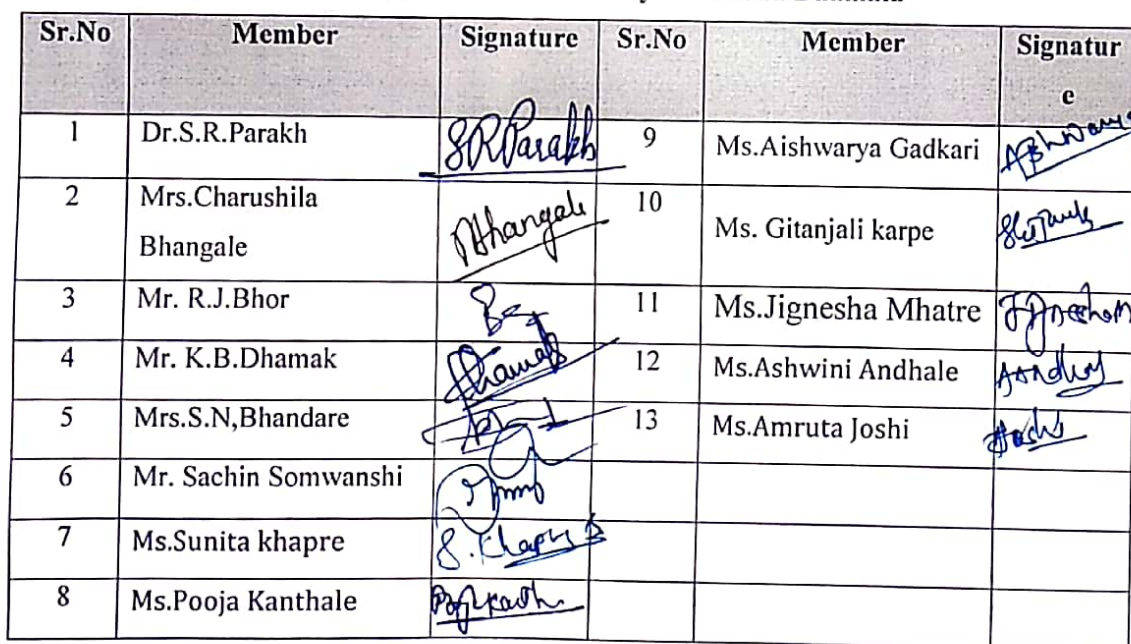 Sr.No Member Signature Sr.No Member Signatur
e
1 Dr.S.R.Parakh SRParakh 9 Ms.Aishwarya Gadkari
2 Mrs.Charushila Bhangale 10 Ms. Gitanjali karpe
3 Mr. R.J.Bhor 11 Ms.Jignesha Mhatre
4 Mr. K.B.Dhamak 12 Ms.Ashwini Andhale
5 Mrs.S.N,Bhandare 13 Ms.Amruta Joshi
6 Mr. Sachin Somwanshi
7 Ms.Sunita khapre
8 Ms.Pooja Kanthale